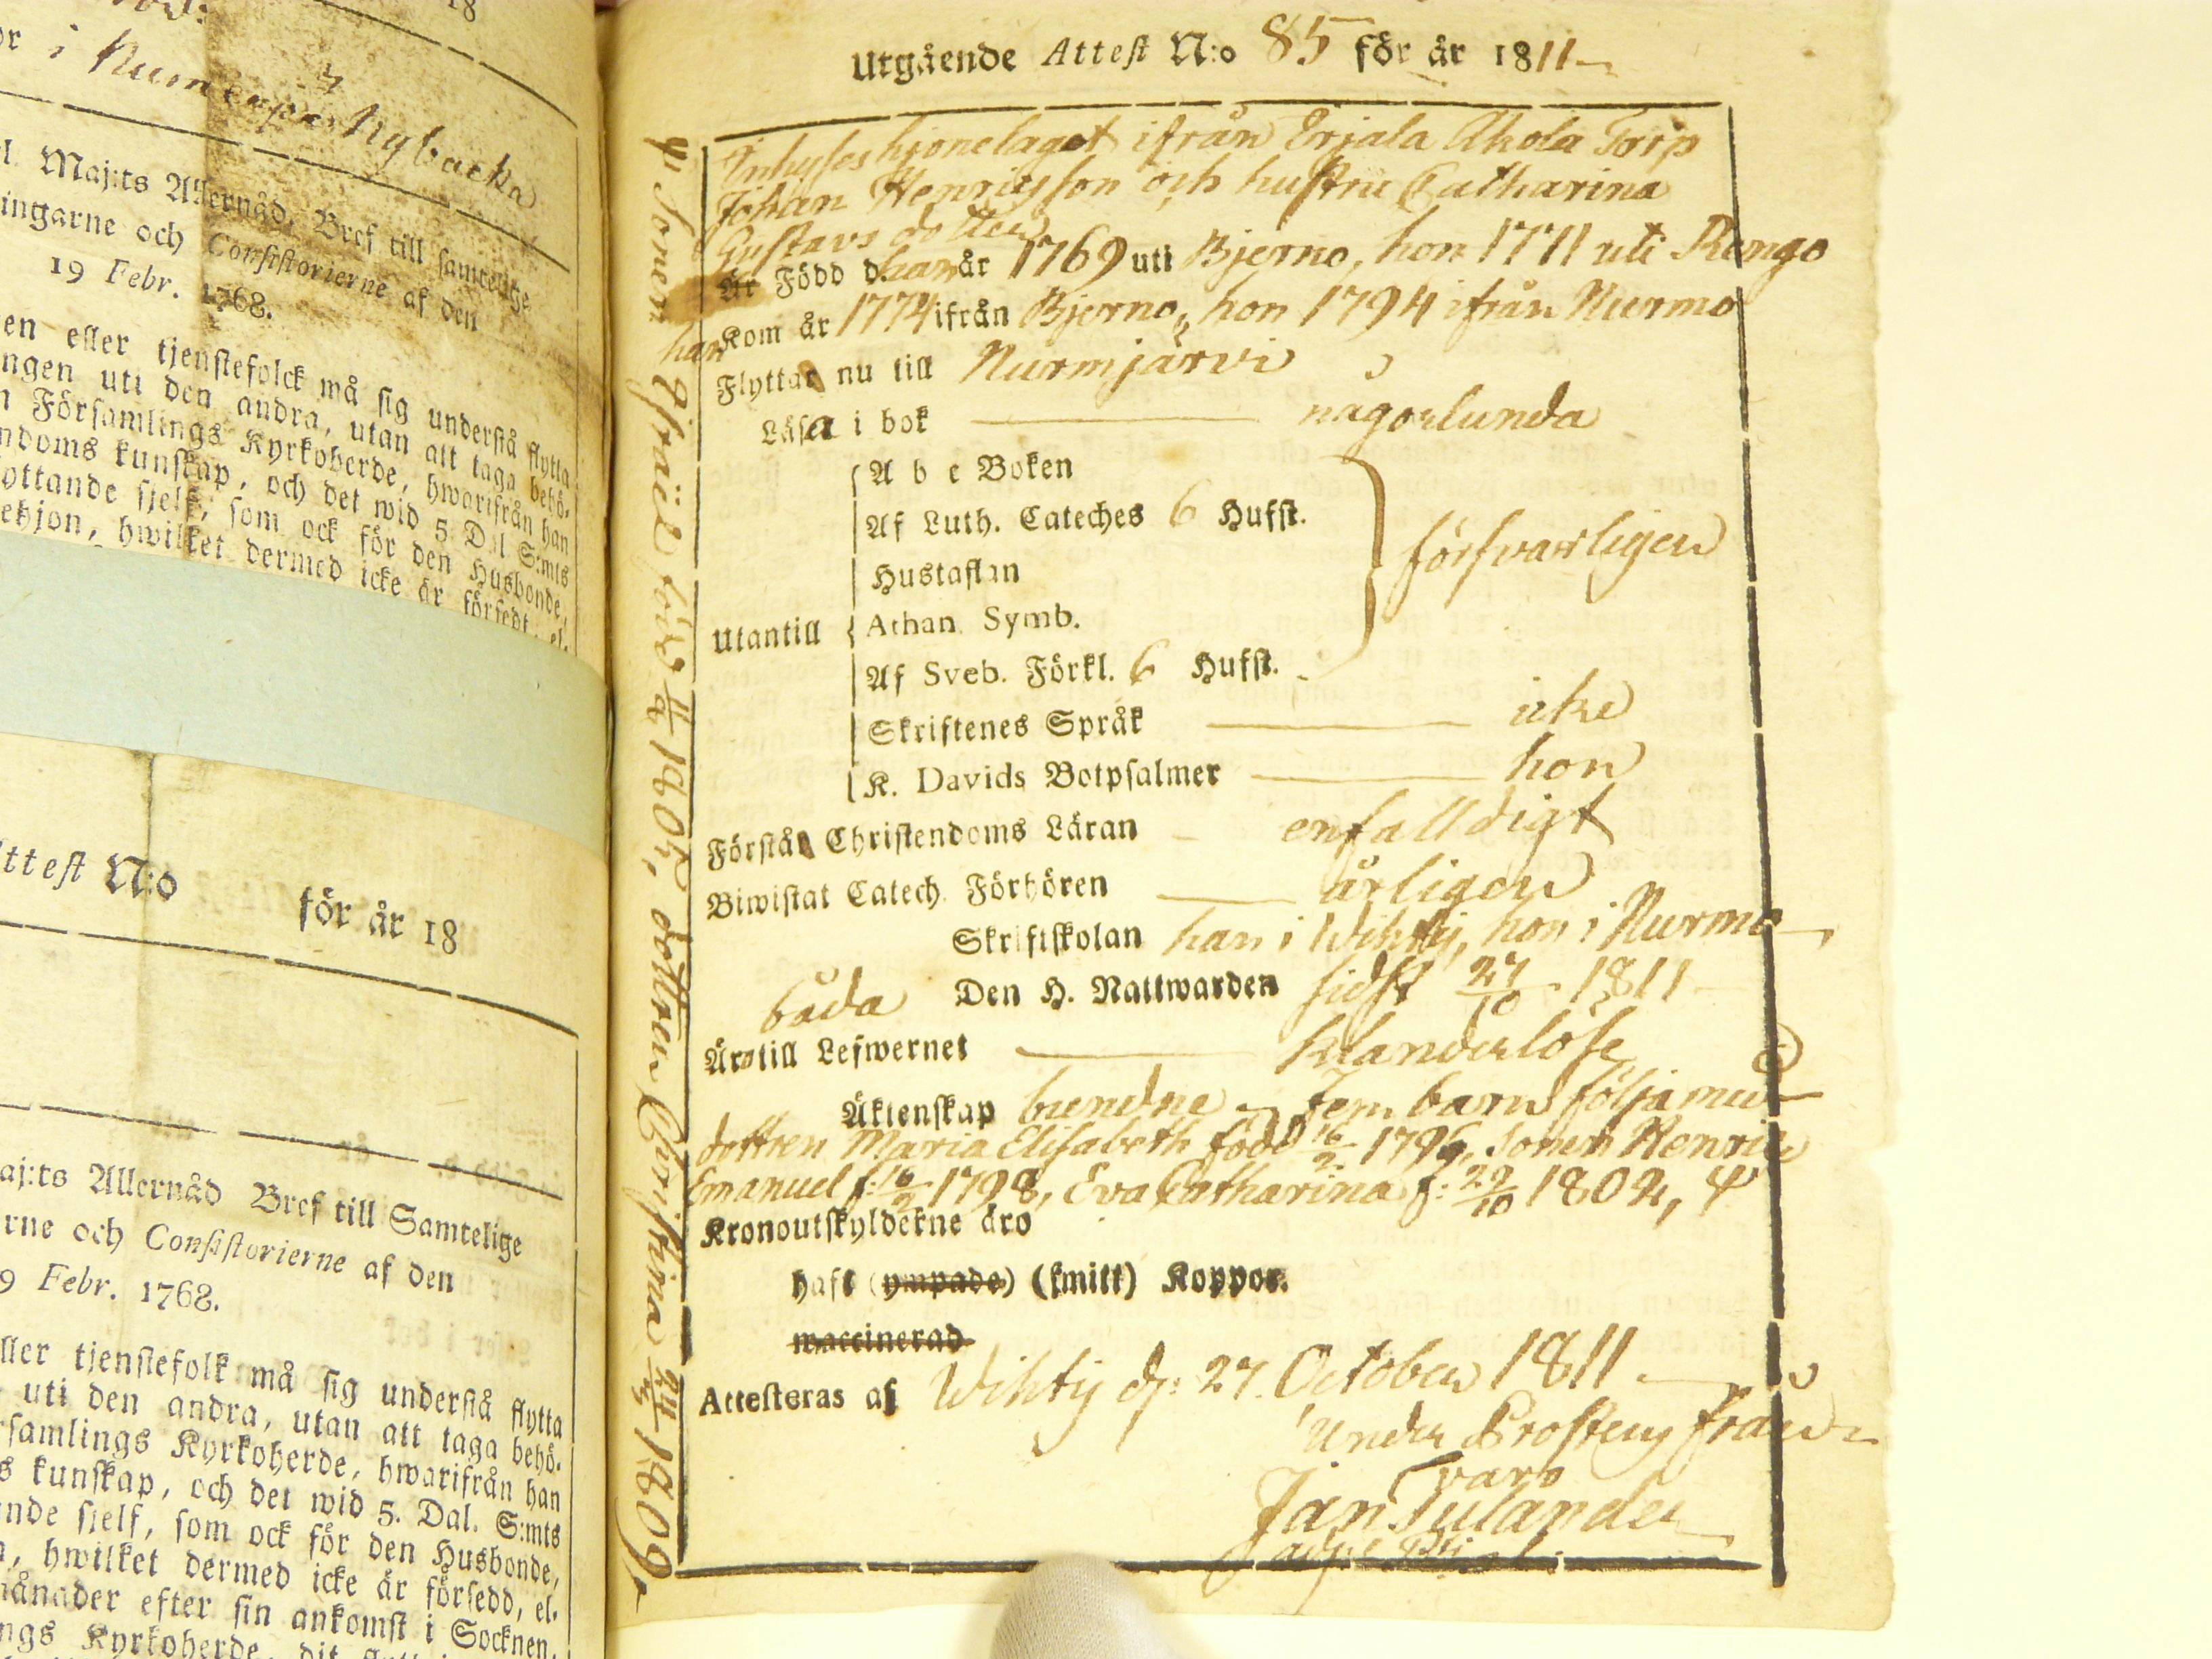 18
i Nurmijärvi Nybacka
Maj:ts Allernåd. Bref till samtelige
ingarne och Consistorierne af den
19 Febr. 1768.
en eller tjenstefolck må sig understå flytta
ngen uti den andra, utan att taga behö-
n Församlings Kyrkoherde, hwarifrån han
ndoms kunskap, och det wid 5 Dal S:mts
ottande sjelf, som ock för den Husbonde,
ehjon, hwilket dermed icke är försedt, el-
ttest N:o för år 18
aj:ts Allernåd Bref till Samtelige
rne och Consistorierne af den
9 Febr. 1768.
ller tjenstefolk må sig understå flytta
uti den andra, utan att taga behö-
rsamlings Kyrkoherde, hwarifrån han
s kunskap, och det wid 5. Dal. S:mts
nde sjelf, som ock för den Husbonde,
n, hwilket dermed icke är försedd, el-
månader efter sin ankomst i Socknen,
ngs Kyrkoherde, dit
Utgående Attest N:o 85 för år 1811
Inhyses hjonelaget ifrån Erjala Ahola Torp
Johan Henricsson och hustru Catharina
Gustavs dotter
Är Född d. han år 1769 uti Bjerno, hon 1771 uti Rengo
han Kom år 1774 ifrån Bjerno, hon 1794 ifrån Nurmo
Flytta nu till Nurmjärvi
Läsa i bok någorlunda
Utantill
A b c Boken
Af Luth. Cateches 6 Hufst.
Hustaflan
Athan. Symb.
Af Sveb. Förkl. 6 Hufst.
försvarligen
Skriftenes Språk icke
K. Davids Botpsalmer hon
Förstå Christendoms Läran enfalldigt
Biwistat Catech. Förhören årligen
Skriftskolan han i Wihtij, hon i Nurmo
båda Den H. Nattwarden sidst 27/10 1811
Äro till Lefwernet klanderlöse
Äktenskap bundne Fem barn följa med
dottren Maria Elisabeth född 16/2 1796, sonen Henric
Emanuel f: 16/2 1798, Eva Catharina f: 22/10 1802, Ψ
Kronoutskylderne äro
haft (ympade) (smitt) Koppor.
waccinerad
Attesteras af Wihtij d: 27 October 1811
Under Prostens från-
varo
Jan Tulander
Ψ Sonen Israël född 11/2 1805, dottren Christina 24/3 1809,